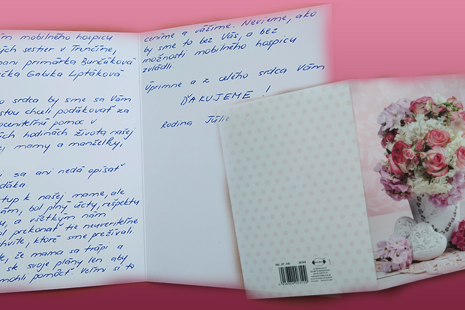 ím mobilného hospicu
ých sestier v Trenčíne,
pani primárka Bunčáková
ička Gabika Liptáková
o srdca by sme sa Vám
stou chceli poďakovať za
oceniteľnú pomoc v
ých hodinách života našej
j mamy a manželky,
i sa ani nedá opísať
ďaka.
stup k našej mame, ale
ám, bol plný úcty, rešpektu
u, a všetkým nám
l prekonať tie neuveriteľne
chvíle, ktoré sme prežívali.
e, že mama sa trápi a
ste svoje plány len aby
mohli pomôcť. Veľmi si to
ceníme a vážime. Nevieme, ako
by sme to bez Vás, a bez
možnosti mobilného hospicu
zvládli.
Úprimne a z celého srdca Vám
ĎAKUJEME !
Rodina Júli